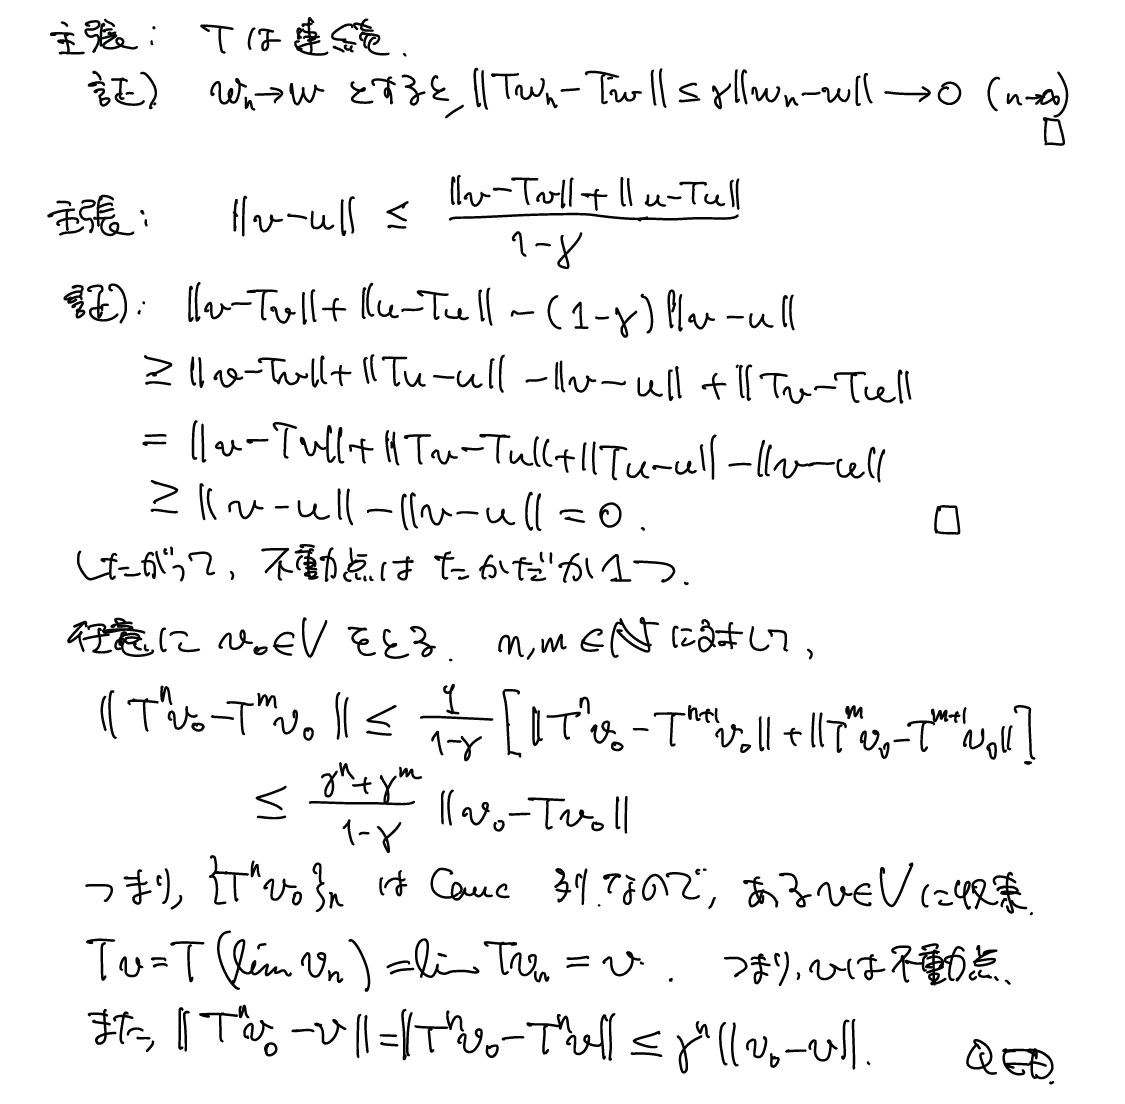 主張: Tは連続.
証) wₙ→w とすると, ‖Twₙ-Tw‖ ≤ γ‖wₙ-w‖ → 0 (n→∞) □
主張: ‖v-u‖ ≤ (‖v-Tv‖+‖u-Tu‖)/(1-γ)
証): ‖v-Tv‖+‖u-Tu‖-(1-γ)‖v-u‖
≥ ‖v-Tv‖+‖Tu-u‖-‖v-u‖+‖Tv-Tu‖
= ‖v-Tv‖+‖Tv-Tu‖+‖Tu-u‖-‖v-u‖
≥ ‖v-u‖-‖v-u‖=0. □
したがって, 不動点はたかだか1つ.
任意に v₀∈V をとる. n,m∈ℕ に対して,
‖Tⁿv₀-Tᵐv₀‖ ≤ 1/(1-γ) [‖Tⁿv₀-Tⁿ⁺¹v₀‖+‖Tᵐv₀-Tᵐ⁺¹v₀‖]
≤ (γⁿ+γᵐ)/(1-γ) ‖v₀-Tv₀‖
つまり, {Tⁿv₀}ₙ は Cauc 列なので, ある v∈V に収束.
Tv=T(lim vₙ)=lim Tvₙ=v. つまり, vは不動点.
また, ‖Tⁿv₀-v‖=‖Tⁿv₀-Tⁿv‖ ≤ γⁿ‖v₀-v‖. QED.